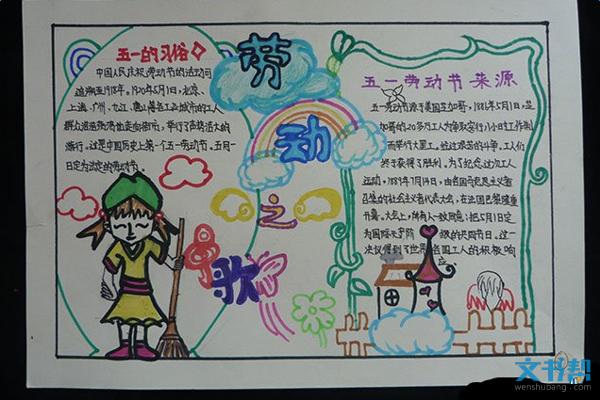 五一的习俗
中国人民庆祝劳动节的活动可
追溯至1918年，1920年5月1日，北京、
上海、广州、九江、唐山等各工业城市的工人
群众浩浩荡荡地走向街市，举行了声势浩大的
游行，这是中国历史上第一个五一劳动节，五月一
日定为法定的劳动节。
劳
动
之
歌
五一劳动节来源
五一劳动节源于美国芝加哥，1886年5月1日，芝
加哥的20多万工人为争取实行八小时工作制
而举行大罢工，经过艰苦的斗争，工人们
终于获得了胜利。为了纪念这次工人
运动，1889年7月14日，由各国马克思主义者
召集的社会主义者代表大会，在法国巴黎隆重
开幕。大会上，所有人一致同意：把5月1日定
为国际无产阶级的共同节日。这一
决议得到了世界各国工人的积极响
应。
文书帮
wenshubang.com